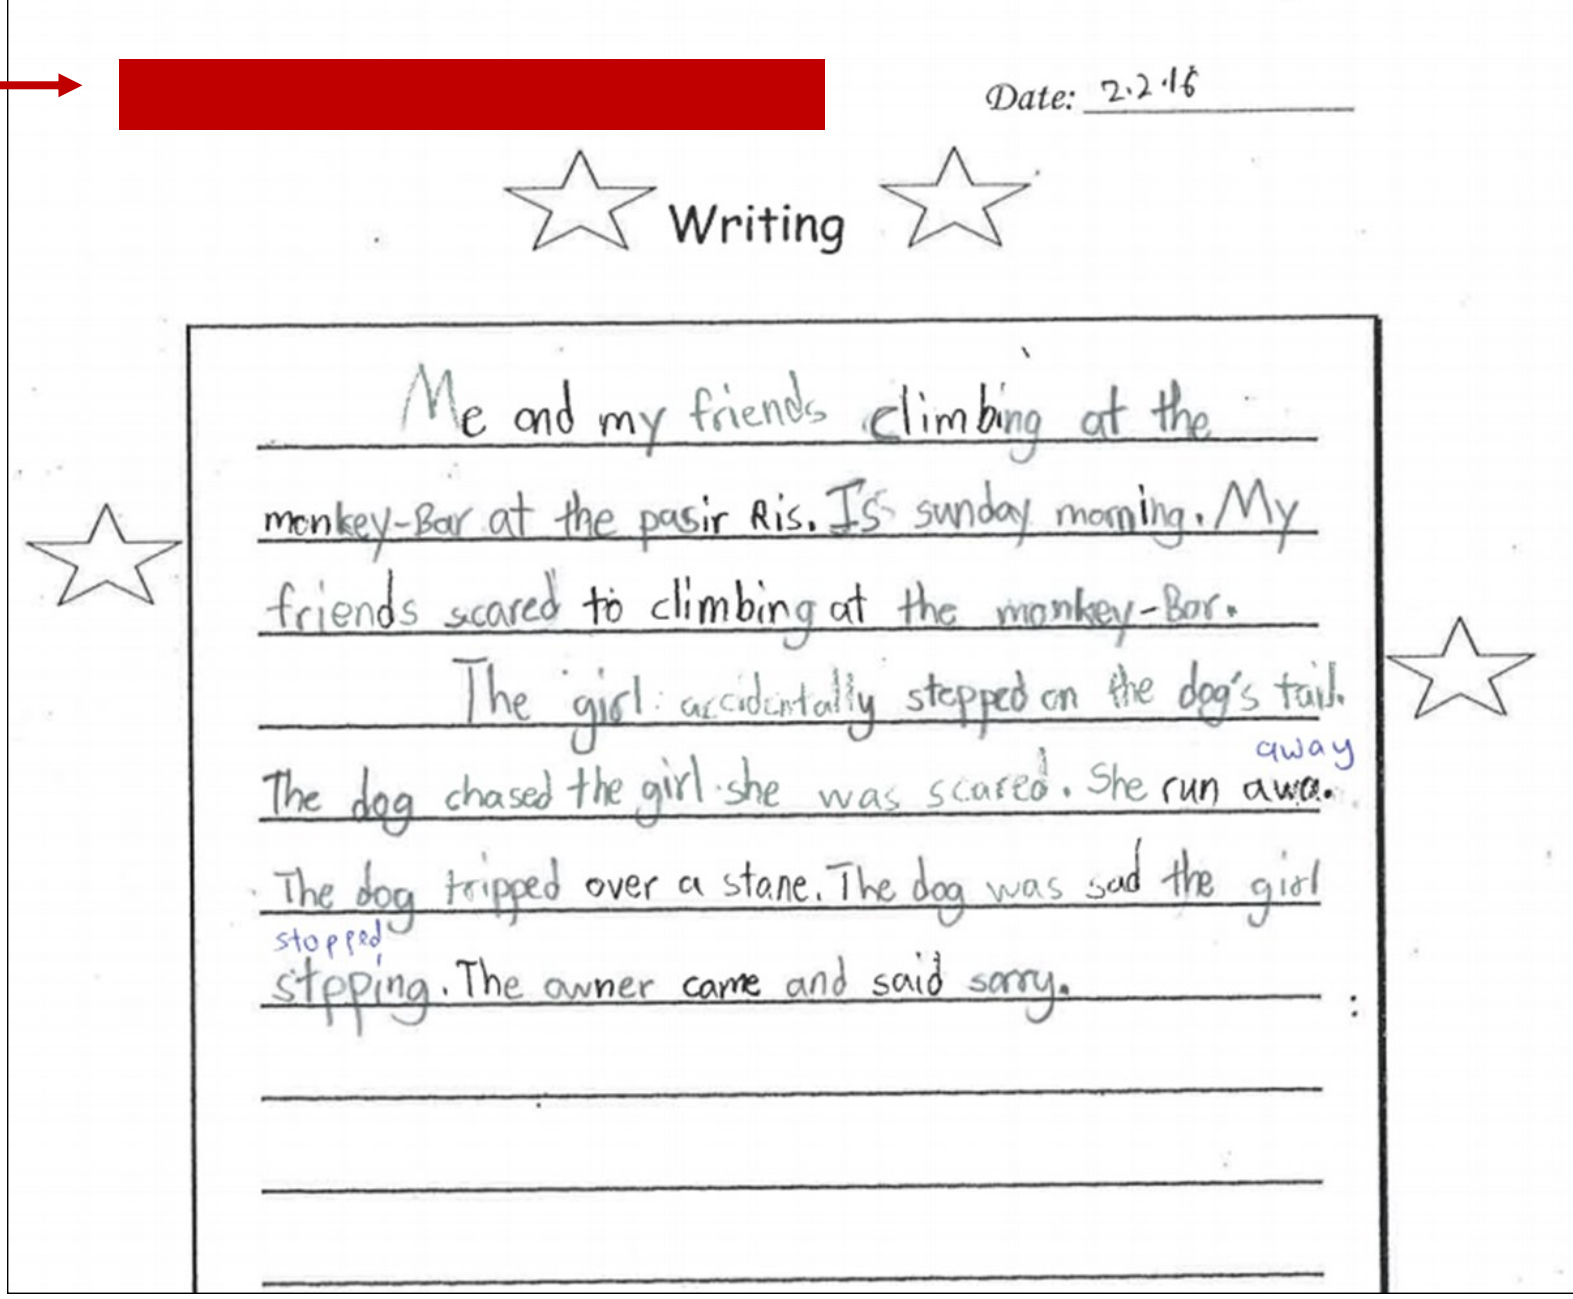 Date: 2.2.16
Writing
Me and my friends climbing at the
monkey-Bar at the pasir Ris. Is sunday morning. My
friends scared to climbing at the monkey-Bar.
The girl accidentally stepped on the dog's tail.
away
The dog chased the girl. she was scared. She run awa.
The dog tripped over a stone. The dog was sad the girl
stopped
stpping. The owner came and said sorry.